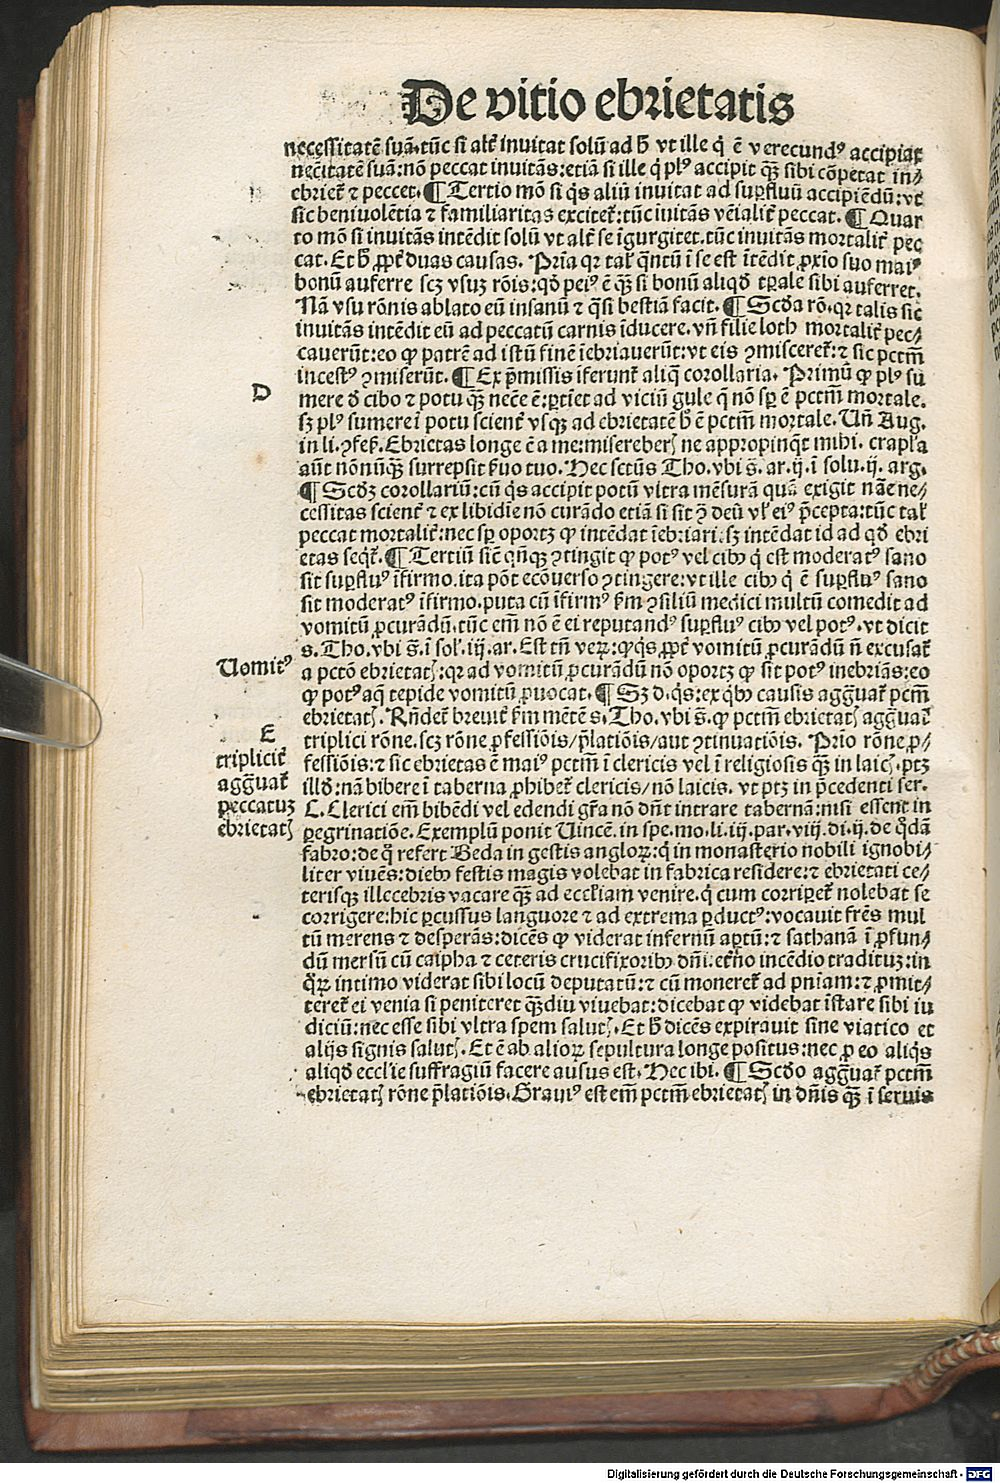 De vitio ebrietatis
necessitatē suā. tūc si alt̄ invitat solū ad h̄ vt ille q̄ ē verecundꝰ accipiat
necītatē suā: nō peccat invitās: etiā si ille q̄ plꝰ accipit qꝫ̄ sibi cōpetat in⸗
ebriet᷑ ⁊ peccet. ¶ Tertio mō si q̄s aliū invitat ad suꝑfluū accipiēdū: vt
sic benivolētia ⁊ familiaritas excitet᷑: tūc īvitās vēialit᷑ peccat. ¶ Quar
to mō si invitās intēdit solū vt alt᷑ se īgurgitet. tūc invitās mortalit᷑ pec
cat. Et h̄ ꝓpt᷑ duas causas. Prīa qꝛ tal᷑ q̄ntū ī se est ītēdit ꝓxīo suo maiꝰ
bonū auferre scꝫ vsuꝫ rōis: qd̄ peiꝰ ē qꝫ̄ si bonū aliqd̄ tꝑale sibi auferret.
Nā vsu rōnis ablato eū insanū ⁊ q̄si bestiā facit. ¶ Scd̄a rō. qꝛ talis sic
invitās intēdit eū ad peccatū carnis īducere. vn̄ filie loth mortalit᷑ pec⸗
caverūt: eo ꝙ patrē ad istū finē īebriaverūt: vt eis ꝯmisceret᷑: ⁊ sic pctm̄
incestꝰ ꝯmiserūt. ¶ Ex p̄missis īferunt᷑ aliq̄ corollaria. Primū ꝙ plꝰ su
D
mere d̄ cibo ⁊ potu qꝫ̄ necē ē: ꝑtiet ad viciū gule q̄ nō sꝑ ē pctm̄ mortale.
sꝫ plꝰ sumere ī potu scient᷑ vsqꝫ ad ebrietatē h̄ ē pctm̄ mortale. Un̄ Aug.
in li. ꝯfeſ. Ebrietas longe ē a me: misereberꝭ ne appropinq̄t mihi. crapl'a
aūt nōnūqꝫ̄ surrepsit ẜuo tuo. Hec sctūs Tho. vbi s̄. ar. ij. ī solu. ij. arg.
¶ Scd̄ꝫ corollariū: cū q̄s accipit potū vltra mēsurā quā exigit nāe ne⸗
cessitas scient᷑ ⁊ ex libidīe nō curādo etiā si sit ꝯ̄ deū vl᷑ eiꝰ p̄cepta: tūc tal᷑
peccat mortalit᷑: nec sꝑ oportꝫ ꝙ intēdat īebriari: sꝫ intēdat id ad qd̄ ebri
etas seqt᷑. ¶ Tertiū sic̄ qn̄qꝫ ꝯtingit ꝙ potꝰ vel cibꝰ q̄ est moderatꝰ sano
sit suꝑfluꝰ īfirmo. ita pōt ecōverso ꝯtingere: vt ille cibꝰ q̄ ē suꝑfluꝰ sano
sit moderatꝰ īfirmo. puta cū īfirmꝰ ẜm ꝯsiliū medici multū comedit ad
vomitū ꝓcurādū. tūc em̄ nō ē ei reputandꝰ suꝑfluꝰ cibꝰ vel potꝰ. vt dicit
s. Tho. vbi s̄. ī sol᷑. iij. ar. Est tn̄ verꝝ: ꝙ q̄s ꝓpt᷑ vomitū ꝓcurādū n̄ excusat᷑
Vomitꝰ
a pctō ebrietatꝭ: qꝛ ad vomitū ꝓcurādū nō oportꝫ ꝙ sit potꝰ inebriās: eo
ꝙ potꝰ aq̄ tepide vomitū ꝓvocat. ¶ Sꝫ d. q̄s: ex q̄bꝰ causis aggͣvat᷑ pctm̄
ebrietatꝭ. Rn̄det᷑ brevit᷑ ẜm mētē s. Tho. vbi s̄. ꝙ pctm̄ ebrietatꝭ aggͣvat᷑
E
triplicit᷑
aggͣvat᷑
peccatuꝫ
ebrietatꝭ
triplici rōne. scꝫ rōne ꝓfessiōis/ p̄latiōis/ aut ꝯtinuatiōis. Prīo rōne ꝓ⸗
fessiōis: ⁊ sic ebrietas ē maiꝰ pctm̄ ī clericis vel ī religiosis qꝫ̄ in laicꝭ. ptꝫ
illd̄: nā bibere ī taberna ꝓhibet᷑ clericis/ nō laicis. vt ptꝫ in p̄cedenti ser.
C. Clerici em̄ bibēdi vel edendi gr̄a nō dn̄t intrare tabernā: nisi essent in
ꝑegrinatiōe. Exemplū ponit Vincē. in spe. mo. li. iij. par. viij. di. ij. de q̄dā
fabro: de q̄ refert Beda in gestis angloꝝ: q̄ in monasterio nobili ignobi⸗
liter vivēs: diebꝰ festis magis volebat in fabrica residere: ⁊ ebrietati ce⸗
terisqꝫ illecebris vacare qꝫ̄ ad eccl'iam venire. q̄ cum corriꝑet᷑ nolebat se
corrigere: hic ꝑcussus languore ⁊ ad extrema ꝑductꝰ: vocavit frēs mul
tū merens ⁊ desperās: dicēs ꝙ viderat infernū aꝑtū: ⁊ sathanā ī ꝓfun⸗
dū mersū cū caipha ⁊ ceteris crucifixoribꝰ dn̄i: et̄no incēdio tradituꝫ: in
q̄ꝝ intimo viderat sibi locū deputatū: ⁊ cū moneret᷑ ad pn̄iam: ⁊ ꝓmit⸗
teret᷑ ei venia si peniteret qꝫ̄diu vivebat: dicebat ꝙ videbat īstare sibi iu
diciū: nec esse sibi vltra spem salutꝭ. Et h̄ dicēs expiravit sine viatico et
alijs signis salutꝭ. Et ē ab alioꝝ sepultura longe positus: nec ꝓ eo aliq̄s
aliqd̄ eccl'ie suffragiū facere ausus est. Hec ibi. ¶ Scd̄o aggͣvat᷑ pctm̄
ebrietatꝭ rōne p̄latiōis. Graviꝰ est em̄ pctm̄ ebrietatꝭ in dn̄is qꝫ̄ ī servis
Digitalisierung gefördert durch die Deutsche Forschungsgemeinschaft - DFG